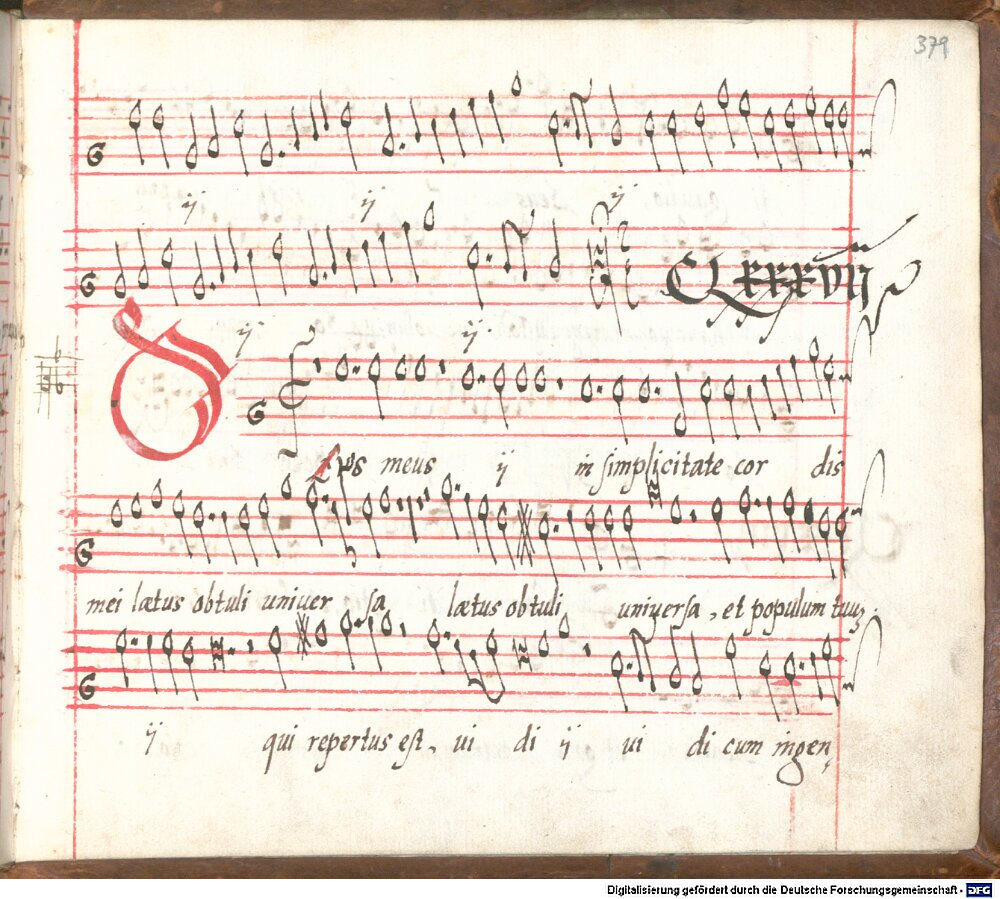 379
ij ij ij
CLXXXVII
ij ij
Deus meus ij in simplicitate cor dis
mei lætus obtuli univer sa lætus obtuli universa, et populum tuuȝ
ij qui repertus est, ui di ij ui di cum ingen,
Digitalisierung gefördert durch die Deutsche Forschungsgemeinschaft - DFG